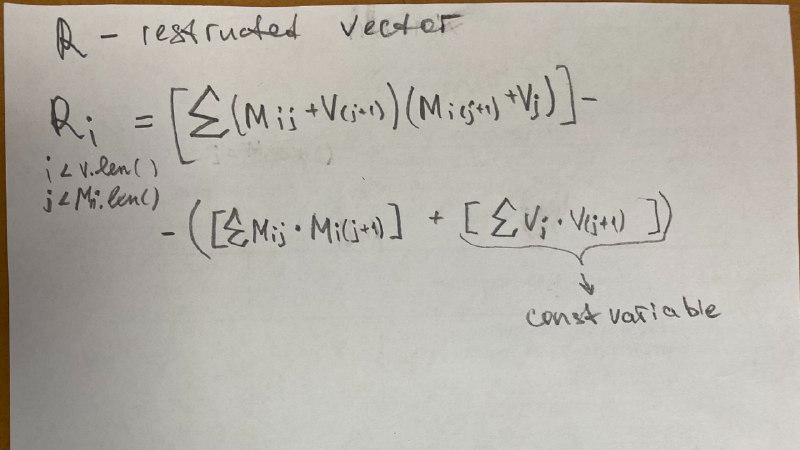 R - restructed vector
Ri = [∑(Mij + V(j+1))(Mi(j+1) + Vj)] -
i < v.len()
j < Mi.len()
- ([∑Mij · Mi(j+1)] + [∑Vj · V(j+1)])
const variable